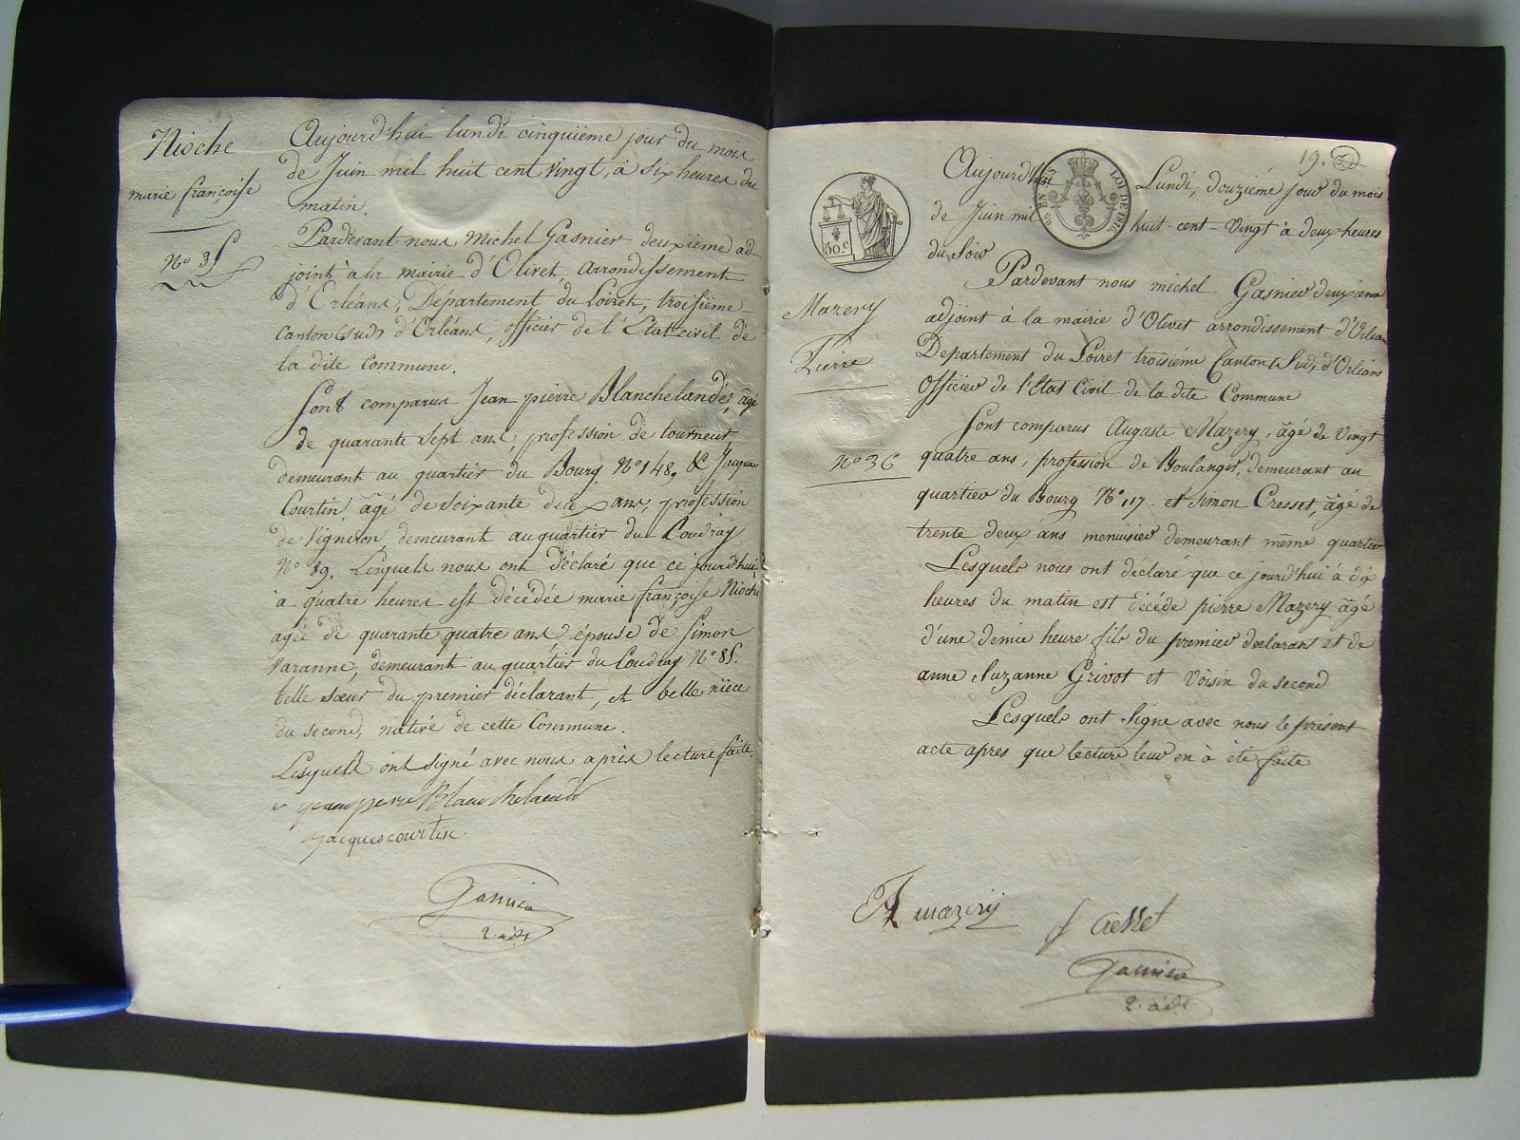 Nioche
marie françoise
N° 35
Aujourd'hui lundi cinquième jour du mois
de Juin mil huit cent vingt, à six heures du
matin.
Pardevant nous Michel Gasnier deuxième ad-
joint à la mairie d'Olivet, arrondissement
d'Orléans, Département du Loiret, troisième
canton (sud) d'Orléans, officier de l'Etat civil de
la dite commune.
Sont comparus Jean pierre Blanchelande, âgé
de quarante sept ans, profession de tourneur
demeurant au quartier du Bourg N° 148, & Jacques
Courtin âgé de soixante deux ans, profession
de Vigneron, demeurant au quartier du Coudray
N° 89. Lesquels nous ont déclaré que ce jourd'hui
à quatre heures est décédée marie françoise Nioche
agée de quarante quatre ans épouse de Simon
Varanne, demeurant au quartier du Coudray N° 85.
belle sœur du premier déclarant, et belle nièce
du second, native de cette Commune.
Lesquels ont signé avec nous après lecture faite.
jean pierre Blanchelande
jacques courtin
Gasnier
2. adt
19.
30 c
LOI DE 1816
Aujourd'hui Lundi, douzième jour du mois
de Juin mil huit-cent-vingt à deux heures
du soir
Pardevant nous michel Gasnier deuxième
adjoint à la mairie d'Olivet arrondissement d'Orléans
Departement du Loiret troisième Canton (Sud) d'Orléans
Officier de l'Etat Civil de la dite Commune
Mazery
Pierre
N° 36
Sont comparus Auguste Mazery, âgé de vingt
quatre ans, profession de Boulanger, demeurant au
quartier du Bourg N° 117. et Simon Cresset, âgé de
trente deux ans menuisier demeurant même quartier
Lesquels nous ont declaré que ce jourd'hui à dix
heures du matin est décédé pierre Mazery âgé
d'une demie heure fils du premier declarant et de
anne Suzanne Grivot et Voisin du second
Lesquels ont signé avec nous le présent
acte apres que lecture leur en à été faite
A mazery
S Cresset
Gasnier
2. adt